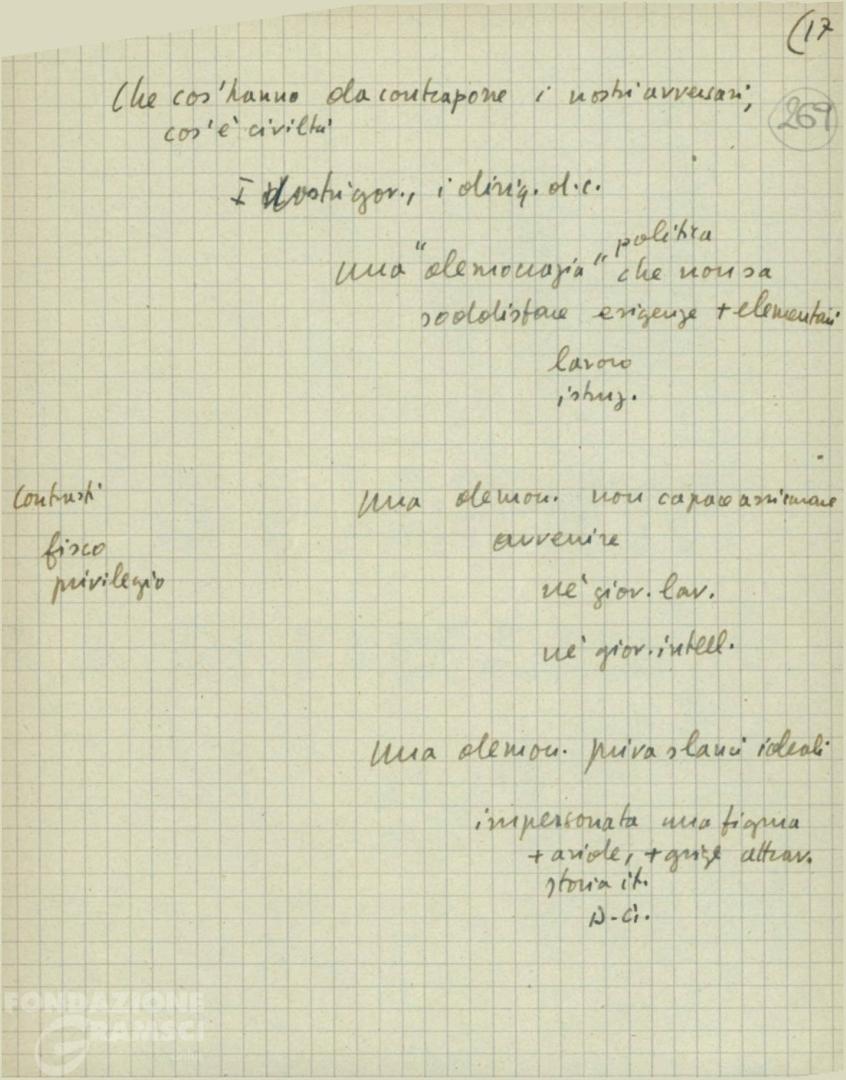 (17
269
Che cos'hanno da contrapporre i nostri avversari,
cos'è civiltà
I nostri gov., i dirig. d.c.
politica
una "democrazia" che non sa
soddisfare esigenze + elementari
lavoro
istruz.
Contrasti
fisco
privilegio
una democr. non capace assicurare
avvenire
nè giov. lav.
nè giov. intell.
una democr. priva slanci ideali
impersonata una figura
+ aride, + grige attrav.
storia it.
D.C.
FONDAZIONE
GRAMSCI